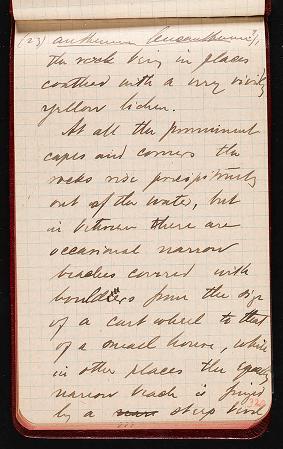 (23) anthemum (leucanthemum),
the rock being in places
coathed with a very vividly
yellow lichen.
At all the prominent
capes and corners the
rocks rise precipitously
out of the water, but
in between there are
occasional narrow
beaches covered with
boulders from the size
of a cart wheel to that
of a small house, while
in other places the equally
narrow beach is fringed
by a steep